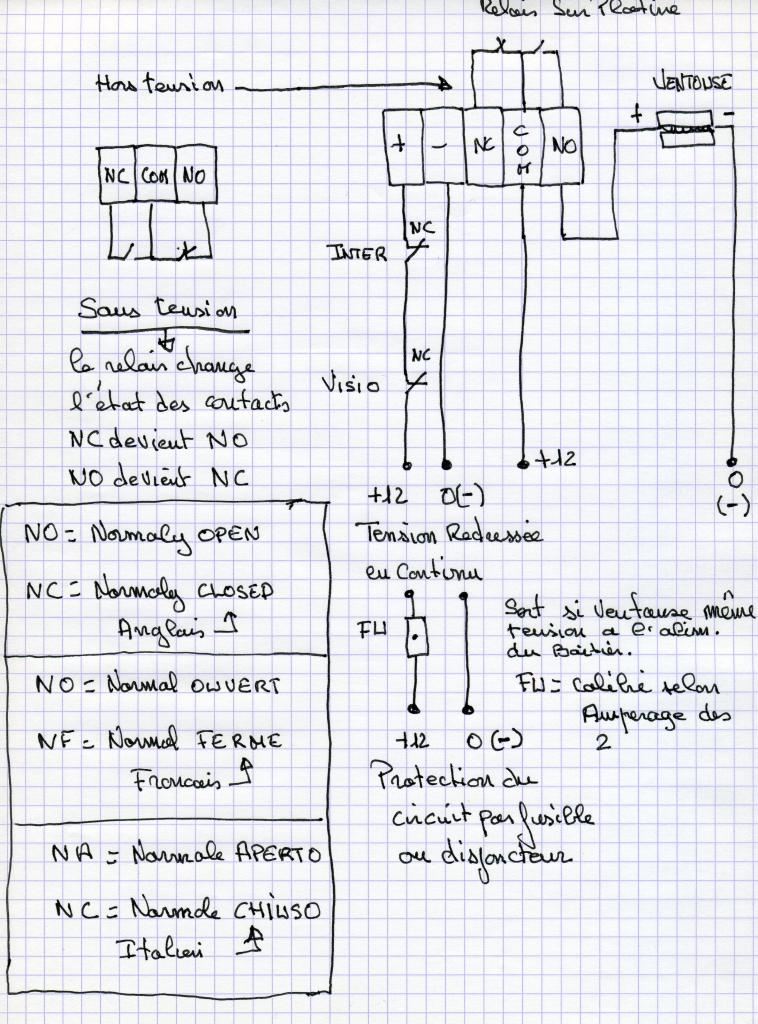 Relais Sur Platine
Hors tension
VENTOUSE
+ -
+ - NC COM NO
NC COM NO
NC
INTER
Sans tension
le relais change
l'état des contacts
NC devient NO
NO devient NC
NC
VISIO
+12
0
(-)
+12 0(-)
NO = Normaly OPEN
NC = Normaly CLOSED
Anglais
NO = Normal OUVERT
NF = Normal FERME
Francais
NA = Normale APERTO
NC = Normale CHIUSO
Italien
Tension Redressée
en Continu
FU
+12 0(-)
Sert si Ventouse même
tension a l'alim.
du Boitier.
FU = Calibré selon
Amperage des
2
Protection du
circuit par fusible
ou disjoncteur